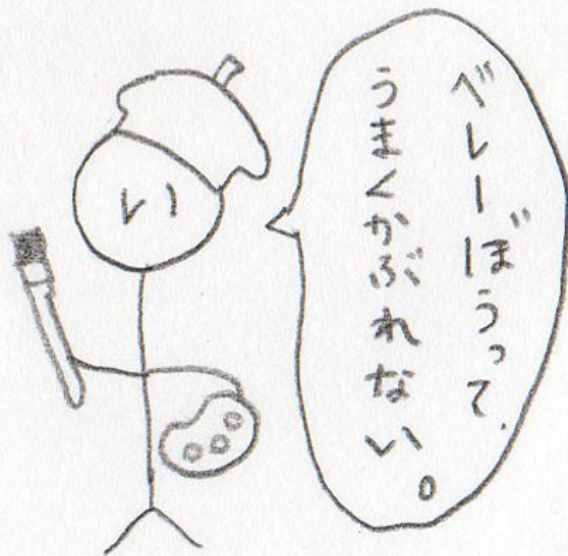 ベレーぼうって、
うまくかぶれない。
い